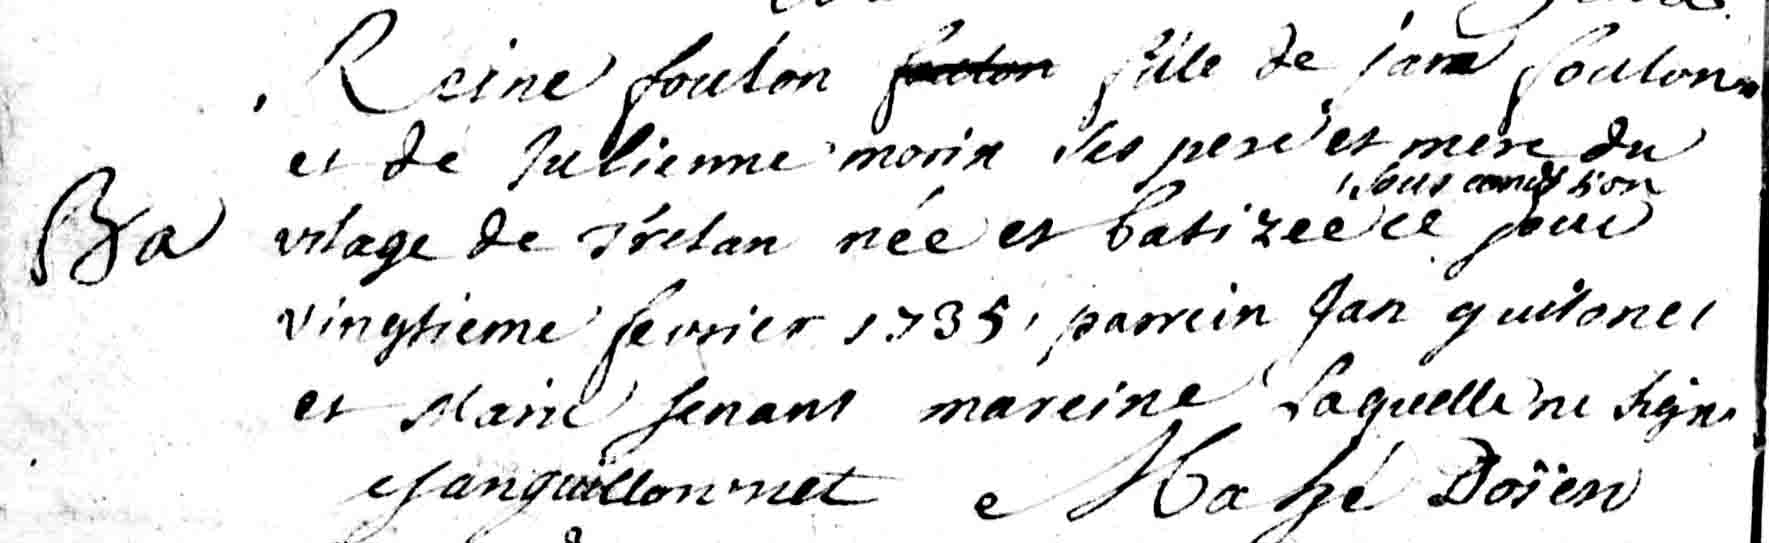 Reine foulon foulon fille de jan foulon
et de Julienne morin ses pere et mere du
sous condition
Ba vilage de Trelan née et batizée ce jour
vingtieme fevrier 1735, parrein Jan guilonet
et Marie henant mareine Laquelle ne signe
Janguillonnet e Mahé Doïen